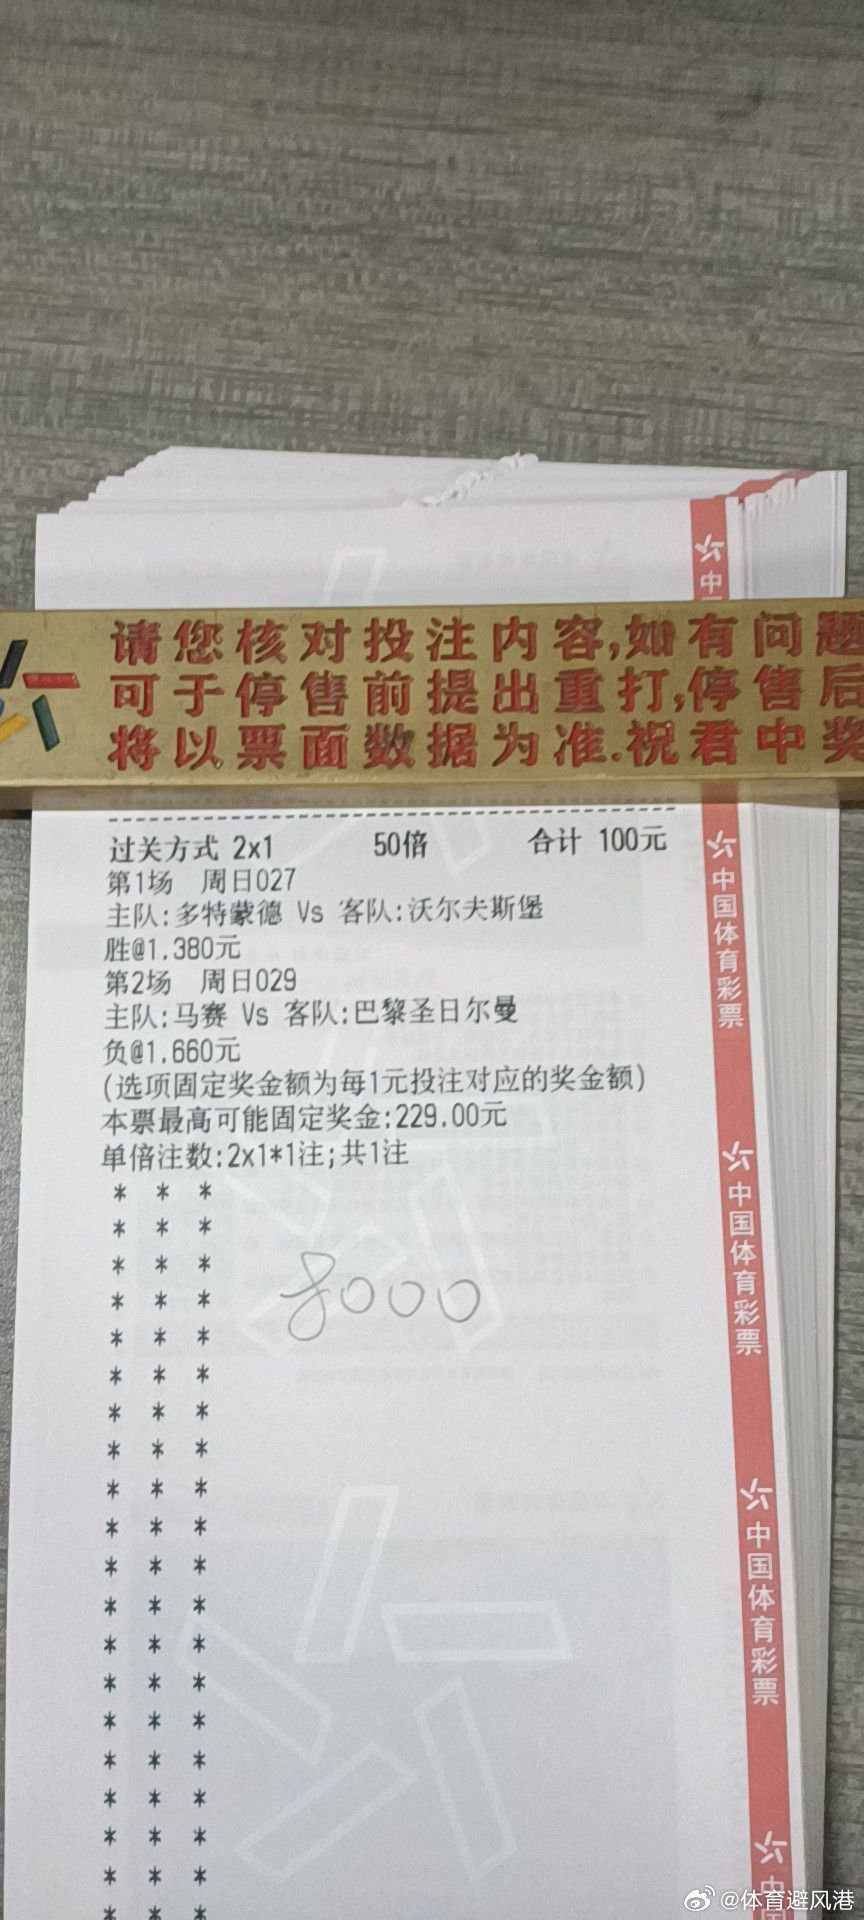 中
请您核对投注内容,如有问题
可于停售前提出重打,停售后
将以票面数据为准.祝君中奖
过关方式 2x1 50倍 合计 100元
第1场 周日027
主队:多特蒙德 Vs 客队:沃尔夫斯堡
胜@1.380元
第2场 周日029
主队:马赛 Vs 客队:巴黎圣日尔曼
负@1.660元
(选项固定奖金额为每1元投注对应的奖金额)
本票最高可能固定奖金:229.00元
单倍注数:2x1*1注;共1注
* * *
* * *
* * *
* * *
* * *
* * *
* * *
* * *
* * *
* * *
* * *
* * *
* * *
* * *
* * *
* * *
* * *
* * *
* * *
* * *
8000
中国体育彩票
中国体育彩票
中国体育彩票
中国
@体育避风港